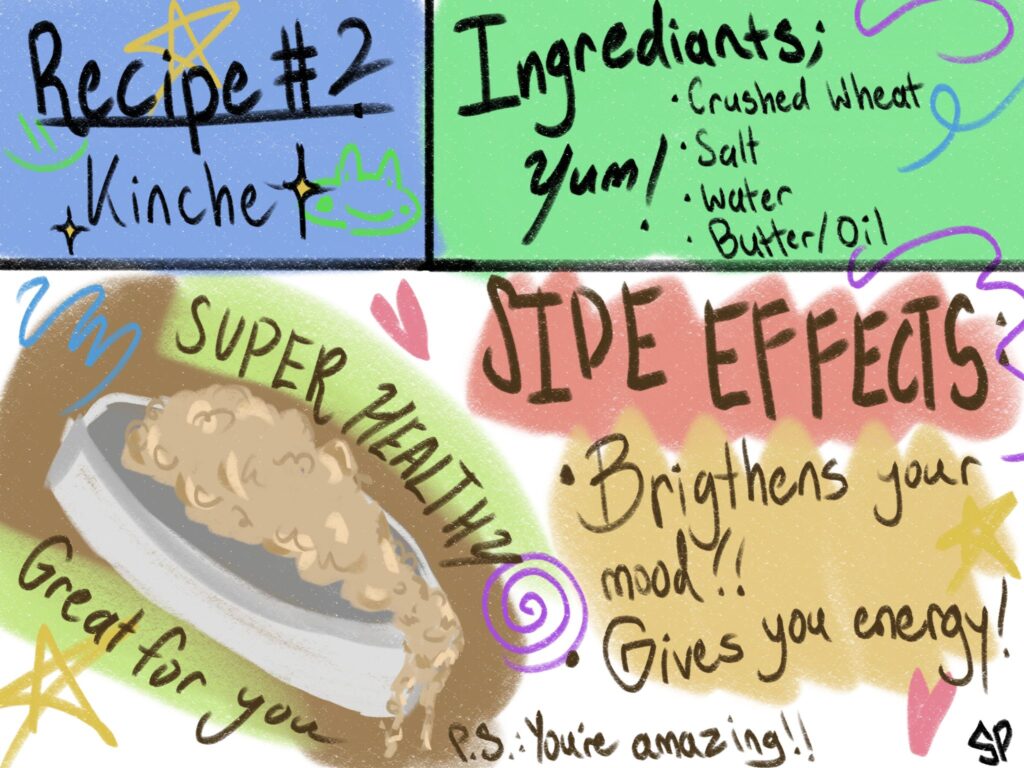 Recipe #2
Kinche
Ingrediants;
• Crushed Wheat
• Salt
• Water
• Butter/Oil
Yum!
SUPER HEALTHY
Great for you
SIDE EFFECTS:
• Brigthens your
mood!!
• Gives you energy!
P.S.: You're amazing!!
SP